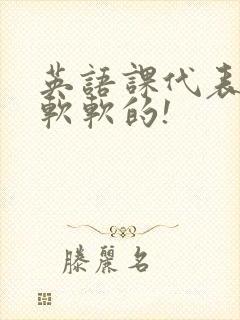 英語課代表
軟軟的!
滕麗名